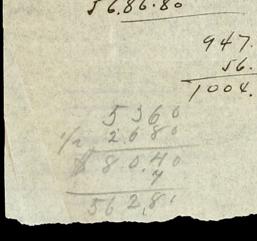 56.86.80
947.
56.
1004.
5360
1/2 2680
$ 80.40
7
5628.